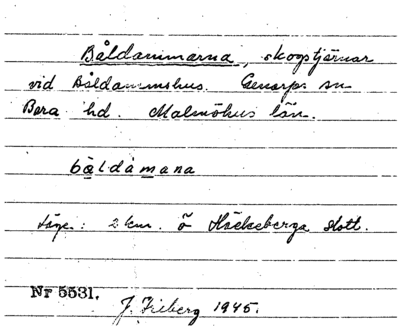 Båldammarna, skogstjärnar
vid Båldammshus. Genarps sn
Bara hd. Malmöhus län.
båldåmana
Läge: 2 km. ö Häckeberga slott.
Nr 5531.
J. Friberg 1945.